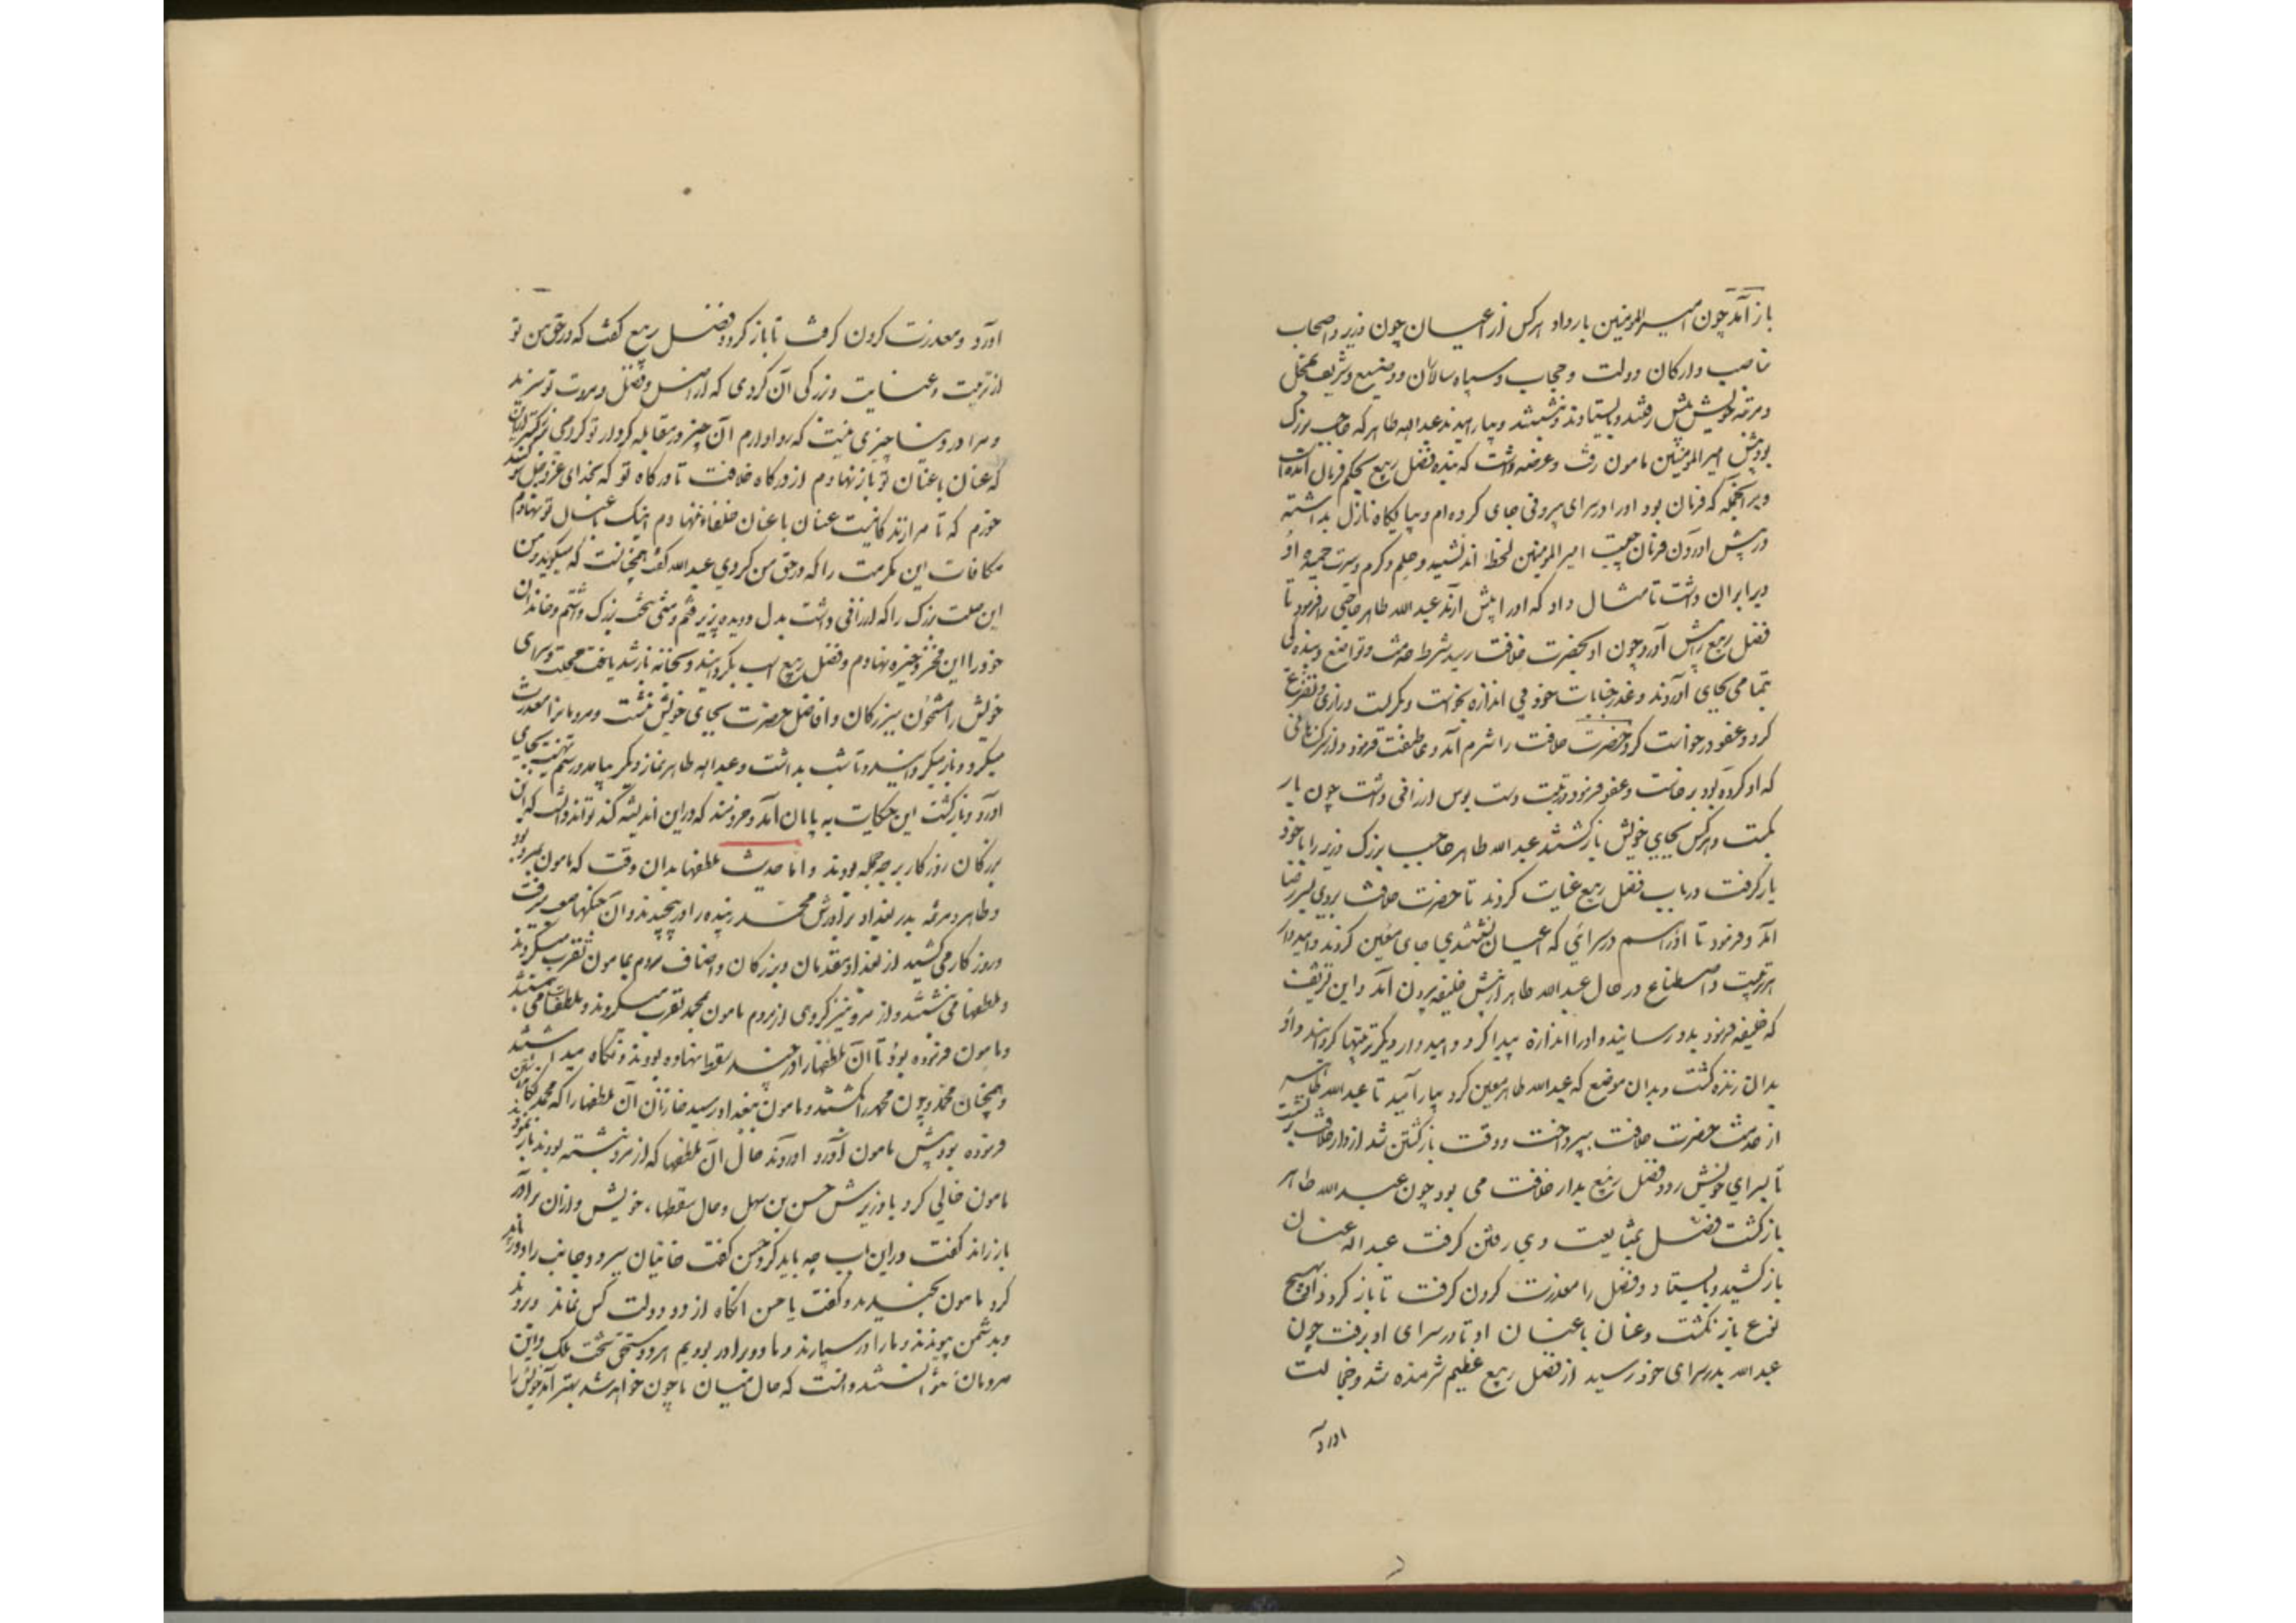 باز آمد چون امیرالمومنین بار داد هر کس از اعیان چون وزیر و اصحاب
مناصب و ارکان دولت و حجاب و سپاه سالاران و وضیع و شریف بمحل
و مرتبه خویش پیش رفتند و بایستادند و بنشستند و بیارامیدند عبدالله طاهر که حاجب بزرگ
بود پیش امیرالمومنین مامون رفت و عرضه داشت که بنده فضل ربیع بحکم فرمان آمده است
و بر آنجمله که فرمان بود او را در سرای بیرونی جای کرده‌ام و بپایگاه نازل بداشته
در پیش آوردن فرمان چیست امیرالمومنین لحظه اندیشید و حلم و کرم و سیرت حمیده او
ویرا بران داشت تا مثال داد که او را پیش آرند عبدالله طاهر حاجبی را فرمود تا
فضل ربیع را پیش آورد چون او بحضرت خلافت رسید شرط خدمت و تواضع و بندگی
بتمامی بجای آوردند و عذر جنایات خود بی اندازه بخواست و بگریست و زاری و تضرع
کرد و عفو درخواست کرد حضرت خلافت را شرم آمد و عاطفت فرمود و از سر گناهانی
که او کرده بود برخاست و عفو فرمود و رتبت دست بوس ارزانی داشت چون بار
بگسست و هر کس بجای خویش بازگشتند عبدالله طاهر حاجب بزرگ وزیر را با خود
یار گرفت در باب فضل ربیع عنایت کردند تا حضرت خلافت بروی بسر رضا
آمد و فرمود تا او را هم در سرائی که اعیان نشستندی جای معین کردند و امیدوار
تربیت و اصطناع در حال عبدالله طاهر از پیش خلیفه بیرون آمد و این تشریف
که خلیفه فرمود بدو رسانید و او را اندازه پیدا کرد و امیدوار دیگر تربیتها گردانید و او
بدان زنده گشت و بدان موضع که عبدالله طاهر معین کرد بیارامید تا عبدالله طاهر
از خدمت حضرت خلافت بپرداخت و وقت بازگشتن شد از دار خلافت بر نشست
تا بسرای خویش رود فضل ربیع بدار خلافت می بود چون عبدالله طاهر
بازگشت فضل بمشایعت وی رفتن گرفت عبدالله عنان
باز کشید و بایستاد و فضل را معذرت کردن گرفت تا باز گردد او بهیچ
نوع باز نگشت و عنان با عنان او تا در سرای او برفت چون
عبدالله بدر سرای خود رسید از فضل ربیع عظیم شرمنده شد و خجالت
آورد
آورد و معذرت کردن گرفت تا باز گردد فضل ربیع گفت که در حق من تو
از تربیت و عنایت و بزرگی آن کردی که از اصل و فضل و مروت تو سزید
و مرا در دنیا چیزی نیست که روا دارم آن چیز در مقابله کردار تو کردمی بزرگتر ازین
که عنان با عنان تو باز نهادم از درگاه خلافت تا درگاه تو که بخدای عز و جل سوگند
خورم که تا مرا زندگانیست عنان با عنان خلفا ننهادم اینک با عنان تو نهادم
مکافات این مکرمت را که در حق من کردی عبدالله گفت همچنانست که میگوید و من
این صلت بزرگ را که ارزانی داشت بدل و دیده پذیرفتم و منتی سخت بزرگ داشتم و خاندان
خود را این فخر ذخیره نهادم و فضل ربیع اسب بگردانید و بخانه باز شد یافت محلت و سرای
خویش را مشحون ببزرگان و افاضل حضرت بجای خویش بنشست و مردمانرا معذرت
میکرد و باز میگردانید و تا شب بداشت و عبدالله طاهر نماز دیگر بیامد و رسم تهنیت بجای
آورد و بازگشت این حکایت به پایان آمد و خردمند که در این اندیشه کند تواند دانست که این
بزرگان روزگار بر چه جمله بودند و اما حدیث ملطفها بدان وقت که مامون بمرو بود
و طاهر و هرثمه بدر بغداد برادرش محمد زبیده را در پیچیدند و آن جنگهای صعب میرفت
و روزگار می کشید از بغداد مقدمان و بزرگان و اصناف مردم بمامون تقرب میکردند
و ملطفها می نبشتند و از مرو نیز گروهی از مردم مامون بمحمد تقرب میکردند و ملطفها می نبشتند
و مامون فرموده بود تا آن ملطفها را در چند سفط بنهاده بودند و نگاه میداشتند
و همچنان محمد و چون محمد را بکشتند و مامون ببغداد رسید خازنان آن ملطفها را که محمد نگاه داشتن
فرموده بود پیش مامون آورد آوردند حال آن ملطفها که از مرو نبشته بودند باز نمودند
مامون خالی کرد با وزیرش حسن بن سهل و حال سفطها، خویش و ازان برادر
باز راند گفت در این باب چه باید کرد حسن گفت خائنان هر دو جانب را دور باید
کرد مامون بخندید و گفت یا حسن آنگاه از دو دولت کس نماند و بروند
و بدشمن پیوندند و ما را در سپارند و ما دو برادر بودیم هر دو مستحق تخت ملک و این
مردمان نتوانستند دانست که حال میان ما چون خواهد شد بهتر آمد خویش را